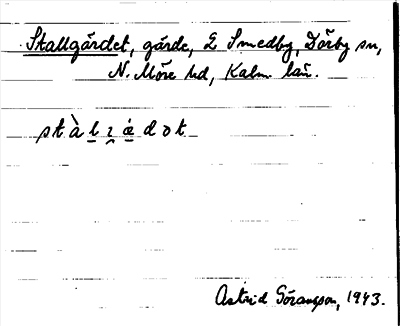 Stallgärdet, gärde, L Smedby, Dörby sn,
N. Möre hd, Kalm. län.
stàlɿædət
Astrid Göransson, 1943.